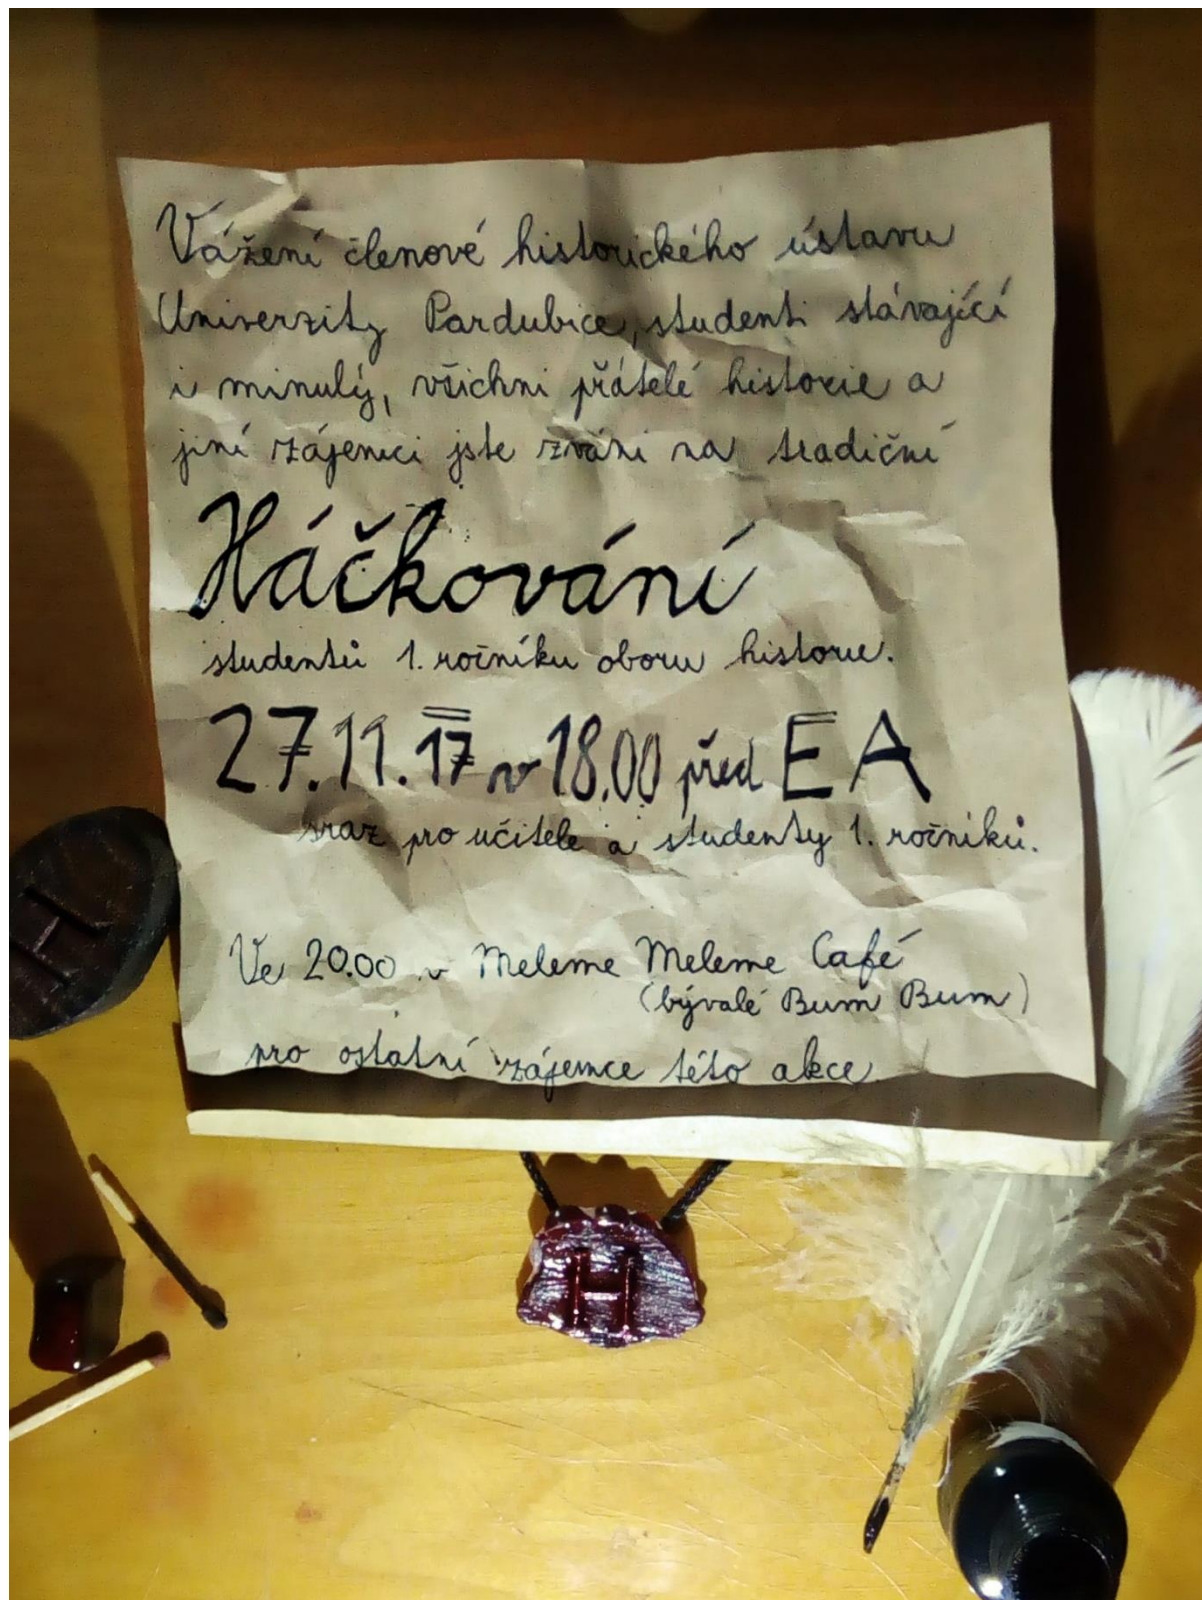 Vážení členové historického ústavu
Univerzity Pardubice, studenti stávající
i minulý, všichni přátelé historie a
jiní zájemci jste zváni na tradiční
Háčkování
studentů 1. ročníku oboru historie.
27.11.17 v 18.00 před EA
sraz pro učitele a studenty 1. ročníků.
Ve 20.00 v Meleme Meleme Café
(bývalé Bum Bum)
pro ostatní zájemce této akce
H
H